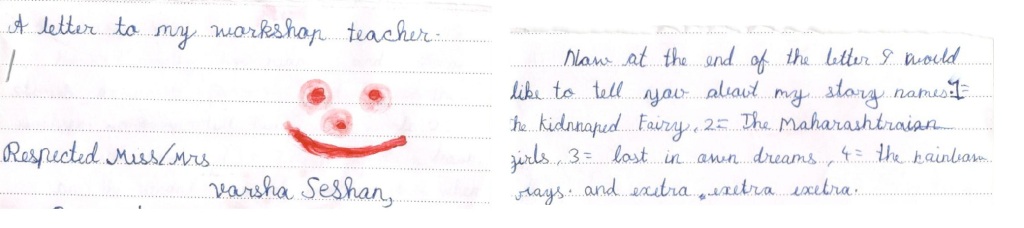 A letter to my workshop teacher.
Respected Miss/Mrs
Varsha Seshan,
Now at the end of the letter I would
like to tell you about my story names. 1=
The Kidnnaped Fairy, 2= The Maharashtraian
girls, 3= lost in own dreams, 4= the rainbow
rays. and exetra, exetra exetra.